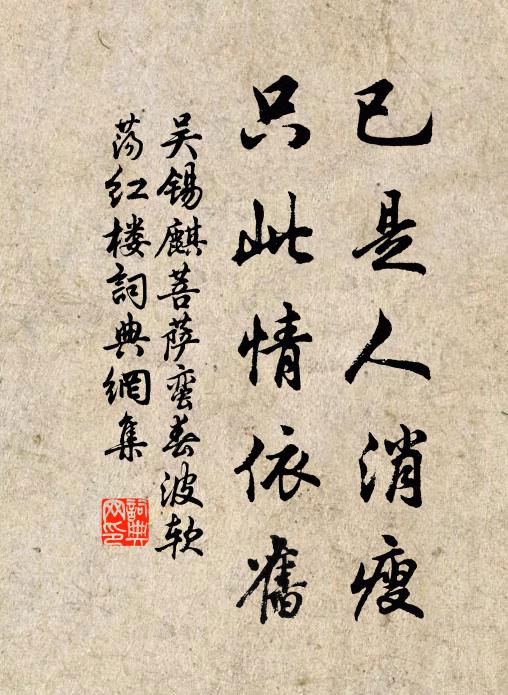 已是人消瘦
只此情依舊
吴锡麒菩萨蛮春波软
荡红楼詞典網集
詞典
网印